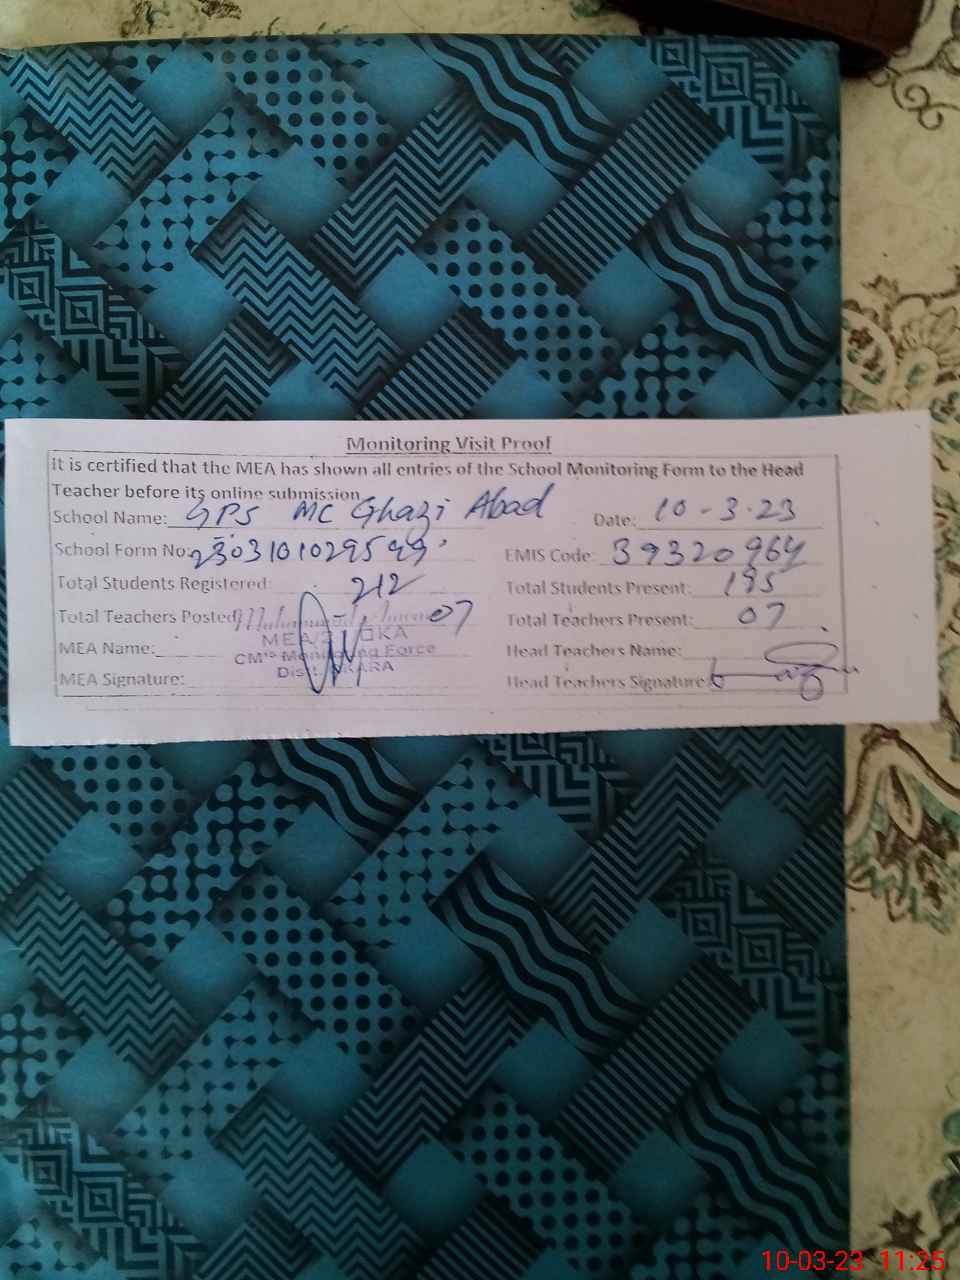 Monitoring Visit Proof
It is certified that the MEA has shown all entries of the School Monitoring Form to the Head
Teacher before its online submission
School Name: GPS MC Ghazi Abad Date: 10-3-23
School Form No: EMIS Code: 39320964
Total Students Registered: 212 Total Students Present: 195
Total Teachers Posted 07 Total Teachers Present: 07
MEA Name: Head Teachers Name:
CM's Monitoring Force
Distt. OKARA
MEA Signature: Head Teachers Signature
10-03-23 11:25